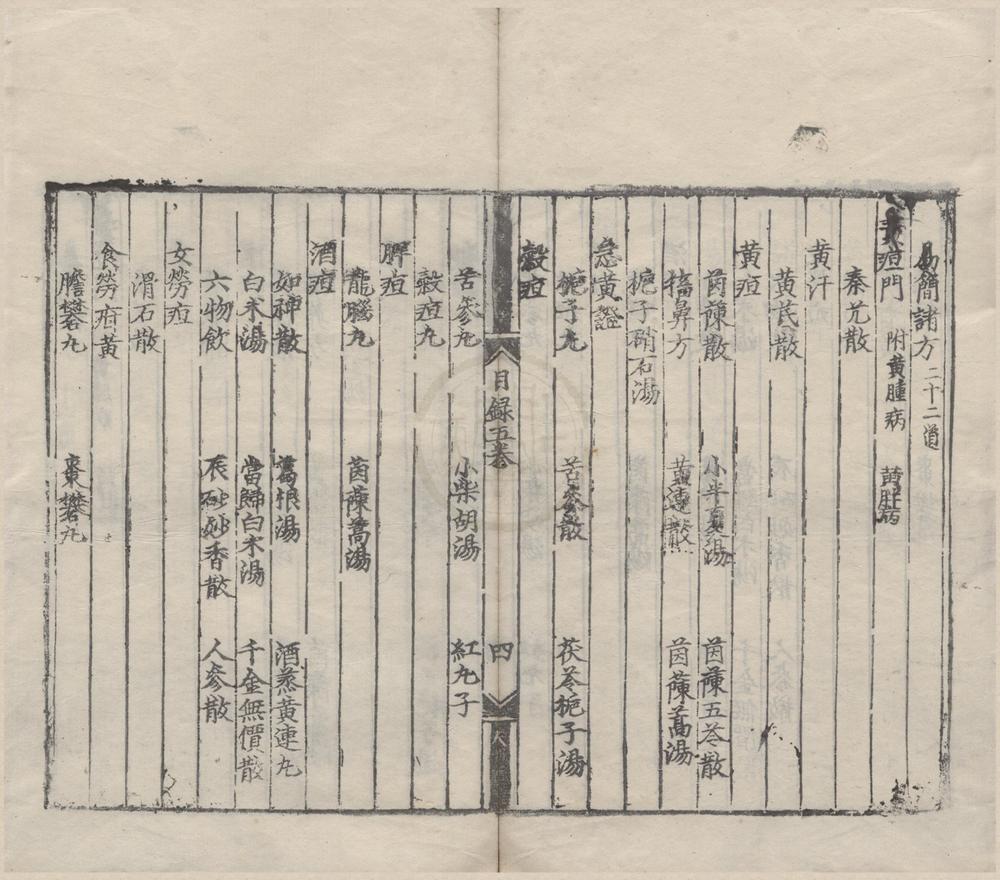 易簡諸方 二十二道
黃疸門 附黄腫病 黄胖病
秦艽散
黄汗
黃芪散
黃疸
茵蔯散 小半夏湯 茵蔯五苓散
搐鼻方 黃連散 茵蔯蒿湯
梔子硝石湯
急黃證
梔子丸 苦參散 茯苓梔子湯
穀疸
目録五卷 四
苦參丸 小柴胡湯 紅丸子
穀疸丸
脾疸
龍腦丸 茵蔯蒿湯
酒疸
如神散 葛根湯 酒蒸黄連丸
白朮湯 當歸白朮湯 千金無價散
六物飲 辰砂妙香散 人參散
女勞疸
滑石散
食勞疳黄
膽礬丸 棗礬丸